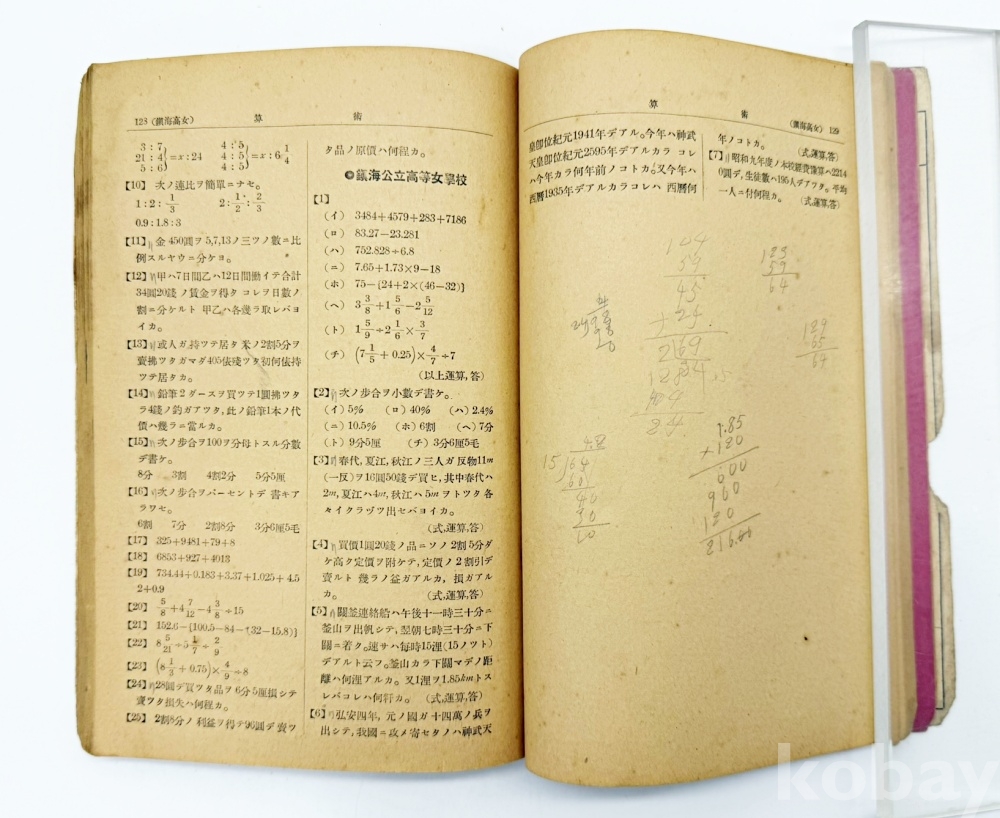 128 (鎭海高女) 算
3 : 7
21 : 4
5 : 6
=x : 24
4 : 5
4 : 5
4 : 5
=x : 6 1/4
【10】 次ノ連比ヲ簡單ニナセ。
1 : 2 : 1/3 2 : 1/2 : 2/3
0.9 : 1.8 : 3
【11】 金 450圓ヲ 5,7,13ノ三ツノ數ニ比
例スルヤウニ分ケヨ。
【12】 甲ハ7日間乙ハ12日間働イテ合計
34圓20錢ノ賃金ヲ得タ コレヲ日數ノ
割ニ分ケルト 甲乙ハ各幾ラ取レバヨ
イカ。
【13】 或人ガ持ツテ居タ米ノ2割5分ヲ
賣拂ツタガマダ405俵殘ツタ初何俵持
ツテ居タカ。
【14】 鉛筆2ダースヲ買ツテ1圓拂ツタ
ラ4錢ノ釣ガアツタ,此ノ鉛筆1本ノ代
價ハ幾ラニ當ルカ。
【15】 次ノ步合ヲ100ヲ分母トスル分數
デ書ケ。
8分 3割 4割2分 5分5厘
【16】 次ノ步合ヲパーセントデ 書キア
ラワセ。
6割 7分 2割8分 3分6厘5毛
【17】 325+9481+79+8
【18】 6853+927+4013
【19】 734.44+0.183+3.37+1.025+4.5
2+0.9
【20】 5/8+4 7/12−4 3/8÷15
【21】 152.6−{100.5−84−(32−15.8)}
【22】 8 5/21÷5 1/7÷2/9
【23】 (8 1/3+0.75)×4/9÷8
【24】 28圓デ買ツタ品ヲ6分5厘損シテ
賣ツタ損失ハ何程カ。
【25】 2割8分ノ利益ヲ得テ90圓デ賣ツ
タ品ノ原價ハ何程カ。
◎鎭海公立高等女學校
【1】
(イ) 3484+4579+283+7186
(ロ) 83.27−23.281
(ハ) 752.828÷6.8
(ニ) 7.65+1.73×9−18
(ホ) 75−{24+2×(46−32)}
(ヘ) 3 3/8+1 5/6−2 5/12
(ト) 1 5/9÷2 1/6×3/7
(チ) (7 1/5+0.25)×4/7÷7
(以上運算,答)
【2】 次ノ步合ヲ小數デ書ケ。
(イ) 5% (ロ) 40% (ハ) 2.4%
(ニ) 10.5% (ホ) 6割 (ヘ) 7分
(ト) 9分5厘 (チ) 3分6厘5毛
【3】 春代,夏江,秋江ノ三人ガ反物11m
(一反)ヲ16圓50錢デ買ヒ,其中春代ハ
2m,夏江ハ4m,秋江ハ5mヲトツタ各
々イクラヅツ出セバヨイカ。
(式,運算,答)
【4】 買價1圓20錢ノ品ニソノ2割5分ダ
ケ高ク定價ヲ附ケテ,定價ノ2割引デ
賣ルト 幾ラノ益ガアルカ,損ガアル
カ。 (式,運算,答)
【5】 關釜連絡船ハ午後十一時三十分ニ
釜山ヲ出帆シテ,翌朝七時三十分ニ下
關ニ着ク。速サハ每時15浬(15ノツト)
デアルト云フ。釜山カラ下關マデノ距
離ハ何浬アルカ。又1浬ヲ1.85kmトス
レバコレハ何粁カ。 (式,運算,答)
【6】 弘安四年,元ノ國ガ十四萬ノ兵ヲ
出シテ,我國ニ攻メ寄セタノハ神武天
算 術 (鎭海高女) 129
皇卽位紀元1941年デアル。今年ハ神武
天皇卽位紀元2595年デアルカラ コレ
ハ今年カラ何年前ノコトカ。又今年ハ
西曆1935年デアルカラコレハ 西曆何
年ノコトカ。 (式,運算,答)
【7】 昭和九年度ノ本校經費豫算ハ2214
0圓デ,生徒數ハ195人デアツタ。平均
一人ニ付何程カ。 (式,運算,答)
104
59
45
+24
2169
123
59
64
129
65
64
24
15
1.85
×120
000
960
120